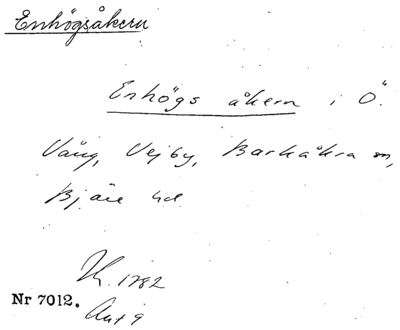 Enhögsåkern
Enhögs åkern i Ö.
Vång, Vejby, Barkåkra m,
Bjäre hd
1782
Nr 7012.